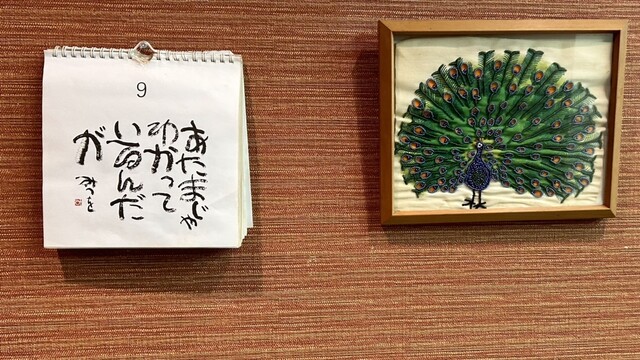 9
あたまじゃ
わかって
いるんだ
が
みつを